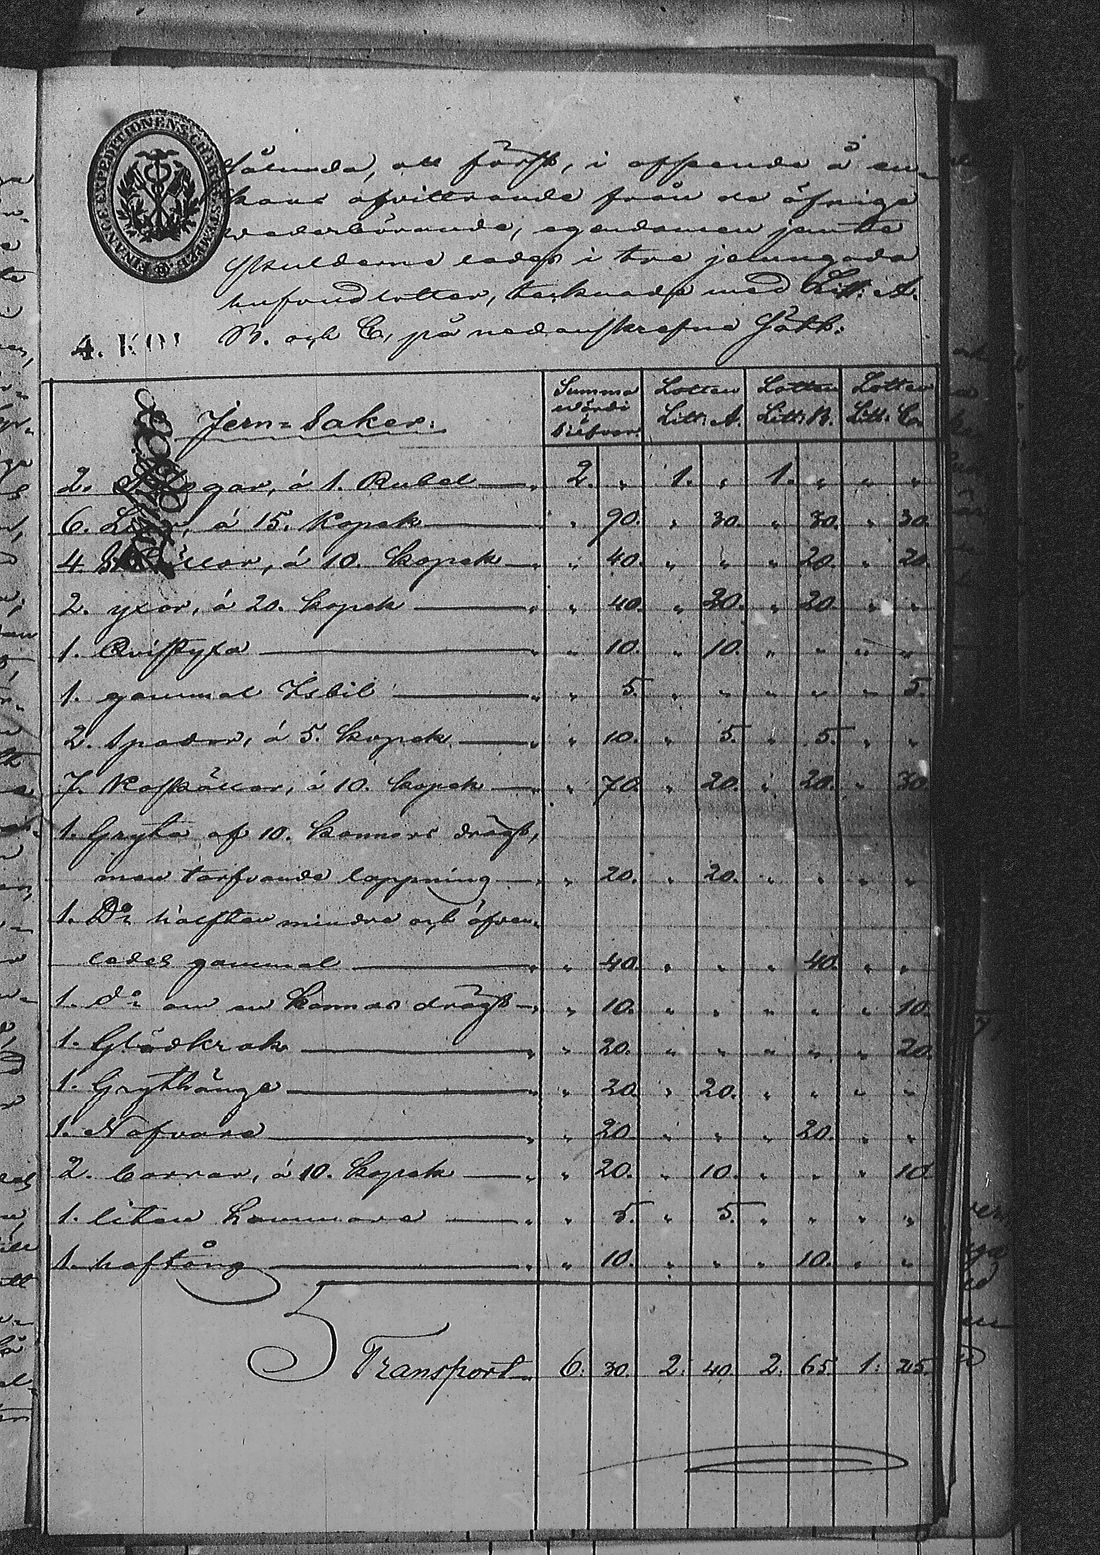 FINANCE EXPEDITIONENS CHARTÆ STEMPEL
4. KOP
sålunda, att först, i afseende å en-
kans afvittrande från de öfrige
wederbörande, egendomen jemte
skulderne lades i tre jemngoda
hufvudlotter, tecknade med Litt: A.
B. och C, på nedanskrefne sätt:
Jern=Saker. Summa värde Silfver Lotten Litt: A. Lotten Litt: B. Lotten Litt: C.
2. gar, á 1. Rubel — 2. „ 1. „ 1. „ „ „
6. á 15. kopek — „ 90. „ 30. „ 30. „ 30.
4. á 10. kopek — „ 40. „ „ „ 20. „ 20.
2. yxor, á 20. kopek — „ 40. „ 20. „ 20. „ „
1. Qvistyxa — „ 10. „ 10. „ „ „ „
1. gammal Isbil — „ 5. „ „ „ „ „ 5.
2. Spador, á 5. kopek — „ 10. „ 5. „ 5. „ „
7. á 10. kopek — „ 70. „ 20. „ 20. „ 30.
1. Gryta af 10. kannors drägt,
men tarfvande lappning — „ 20. „ 20. „ „ „ „
1. D:o hälften mindre och äfven-
ledes gammal — „ 40. „ „ „ 40. „ „
1. d:o om en kannas drägt — „ 10. „ „ „ „ „ 10.
1. Glödkrok — „ 20. „ „ „ „ „ 20.
1. Grythänge — „ 20. „ 20. „ „ „ „
1. Nafvare — „ 20. „ „ „ 20. „ „
2. borrar, á 10. kopek — „ 20. „ 10. „ „ „ 10.
1. liten hammare — „ 5. „ 5. „ „ „ „
1. hoftång — „ 10. „ „ „ 10. „ „
Transport 6. 30. 2. 40. 2. 65. 1. 25.